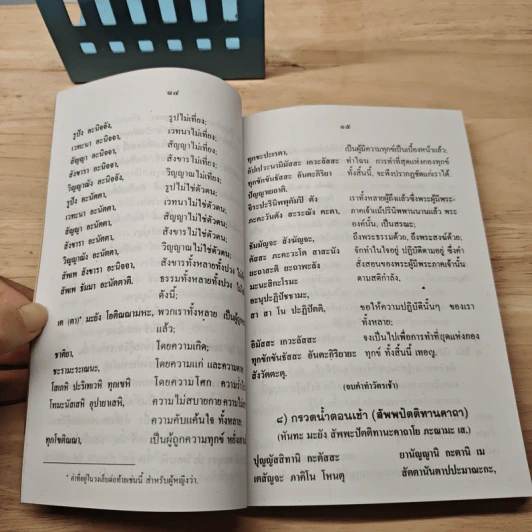 ๑๔
รูปัง อะนิจจัง, รูปไม่เที่ยง;
เวทะนา อะนิจจา, เวทนาไม่เที่ยง;
สัญญา อะนิจจา, สัญญาไม่เที่ยง;
สังขารา อะนิจจา, สังขารไม่เที่ยง;
วิญญาณัง อะนิจจัง, วิญญาณไม่เที่ยง;
รูปัง อะนัตตา, รูปไม่ใช่ตัวตน;
เวทะนา อะนัตตา, เวทนาไม่ใช่ตัวตน;
สัญญา อะนัตตา, สัญญาไม่ใช่ตัวตน;
สังขารา อะนัตตา, สังขารไม่ใช่ตัวตน;
วิญญาณัง อะนัตตา, วิญญาณไม่ใช่ตัวตน;
สัพเพ สังขารา อะนิจจา, สังขารทั้งหลายทั้งปวง
สัพเพ ธัมมา อะนัตตาติ. ธรรมทั้งหลายทั้งปวง
ดังนี้;
เต (ตา)* มะยัง โอติณณามหะ, พวกเราทั้งหลาย เป็นผู้
แล้ว;
ชาติยา, โดยความเกิด;
ชะรามะระเณนะ, โดยความแก่ และความ
โสเกหิ ปะริเทเวหิ ทุกเขหิ โดยความโศก
โทมะนัสเสหิ อุปายาเสหิ, ความไม่สบายกาย
ความคับแค้นใจ ทั้งหลาย
ทุกโขติณณา, เป็นผู้ถูกความทุกข์
* คำที่อยู่ในวงเล็บต่อท้ายเช่นนี้ สำหรับผู้หญิงว่า.
๑๕
ทุกขะปะเรตา, เป็นผู้มีความทุกข์เป็นเบื้องหน้าแล้ว;
อัปเปวะนามิมัสสะ เกวะลัสสะ ทำไฉน การทำที่สุดแห่งกองทุกข์
ทุกขักขันธัสสะ อันตะกิริยา ทั้งสิ้นนี้, จะพึงปรากฏชัดแก่เราได้.
ปัญญาเยถาติ.
จิระปะรินิพพุตัมปิ ตัง เราทั้งหลายผู้ถึงแล้วซึ่งพระผู้มีพระ-
ภะคะวันตัง สะระณัง คะตา, ภาคเจ้าแม้ปรินิพพานนานแล้ว พระ
องค์นั้น, เป็นสรณะ;
ธัมมัญจะ สังฆัญจะ, ถึงพระธรรมด้วย, ถึงพระสงฆ์ด้วย;
ตัสสะ ภะคะวะโต สาสะนัง จักทำในใจอยู่ ปฏิบัติตามอยู่ ซึ่งคำ
ยะถาสะติ ยะถาพะลัง สั่งสอนของพระผู้มีพระภาคเจ้านั้น
มะนะสิกะโรมะ ตามสติกำลัง.
อะนุปะฏิปัชชามะ,
สา สา โน ปะฏิปัตติ, ขอให้ความปฏิบัตินั้นๆ ของเรา
ทั้งหลาย;
อิมัสสะ เกวะลัสสะ จงเป็นไปเพื่อการทำที่สุดแห่งกอง
ทุกขักขันธัสสะ อันตะกิริยายะ ทุกข์ ทั้งสิ้นนี้ เทอญ.
สังวัตตะตุ.
(จบคำทำวัตรเช้า)
๘) กรวดน้ำตอนเช้า (สัพพปัตติทานคาถา)
(หันทะ มะยัง สัพพะปัตติทานะคาถาโย ภะณามะ เส.)
ปุญญัสสิทานิ กะตัสสะ ยานัญญานิ กะตานิ เม
เตสัญจะ ภาคิโน โหนตุ สัตตานันตาปปะมาณะกะ,